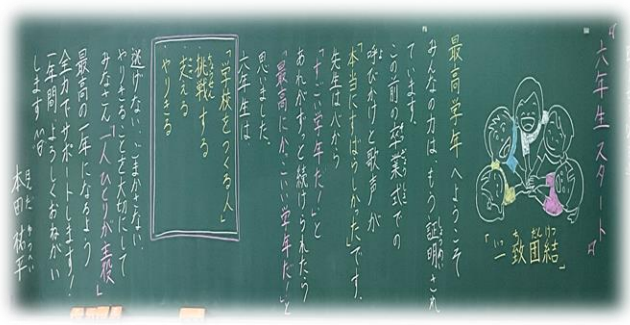 六年生スタート
「一致団結」
最高学年へようこそ
みんなの力は、もう証明され
ています。
この前の卒業式での
呼びかけと歌声が
「本当にすばらしかった」です。
先生は心から
「すごい学年だ！」と
あれがずっと続けられたら
「最高にかっこいい学年だ！」と
思いました。
六年生は
「学校をつくる人」
挑戦する
支える
やりきる
逃げない、ごまかさない
やりきることを大切にして
みなさん一人ひとりが主役
最高の一年になるよう
全力でサポートします！
一年間、よろしくおねがい
します
本田 祐平